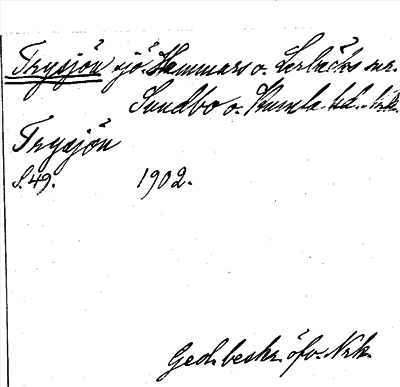 Trysjön sjö. Hammars o. Lerbäcks snr.
Sundbo o. Kumla hd. Nrk.
Trysjön
S. 49. 1902.
Geol. beskr. öfv. Nrk.